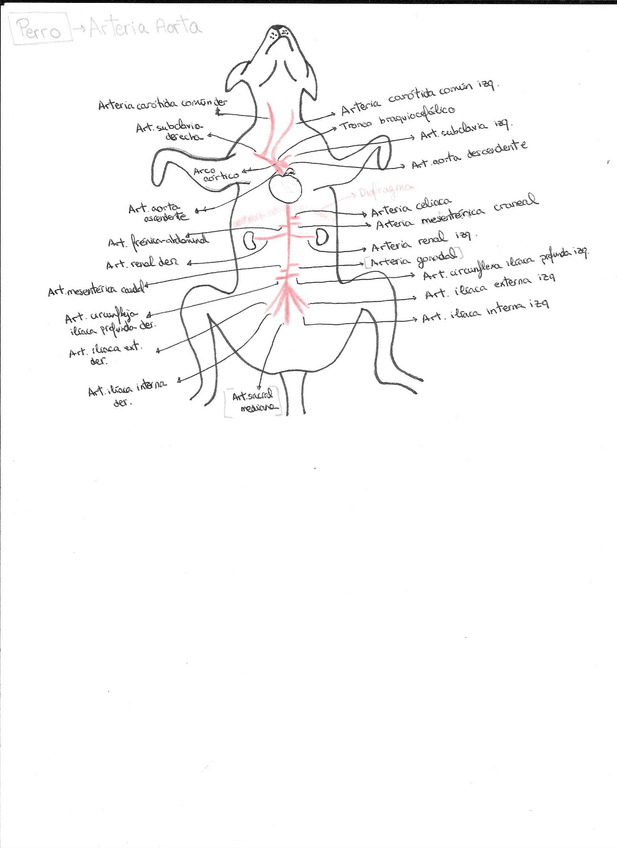 Perro → Arteria Aorta
Arteria carótida común der
Arteria carótida común izq.
Tronco braquiocefálico
Art. subclavia
derecha
Art. subclavia izq.
Arco
aórtico
Art. aorta descendente
Diafragma
Art. aorta
ascendente
Arteria celiaca
Arteria mesentérica craneal
Art. frénico-abdominal
Arteria renal izq.
Art. renal der.
[Arteria gonadal]
Art. mesentérica caudal
Art. circunfleja ilíaca profunda izq.
Art. circunfleja
ilíaca profunda der.
Art. ilíaca externa izq
Art. ilíaca interna izq
Art. ilíaca ext.
der.
Art. ilíaca interna
der.
[Art. sacral
mediana]